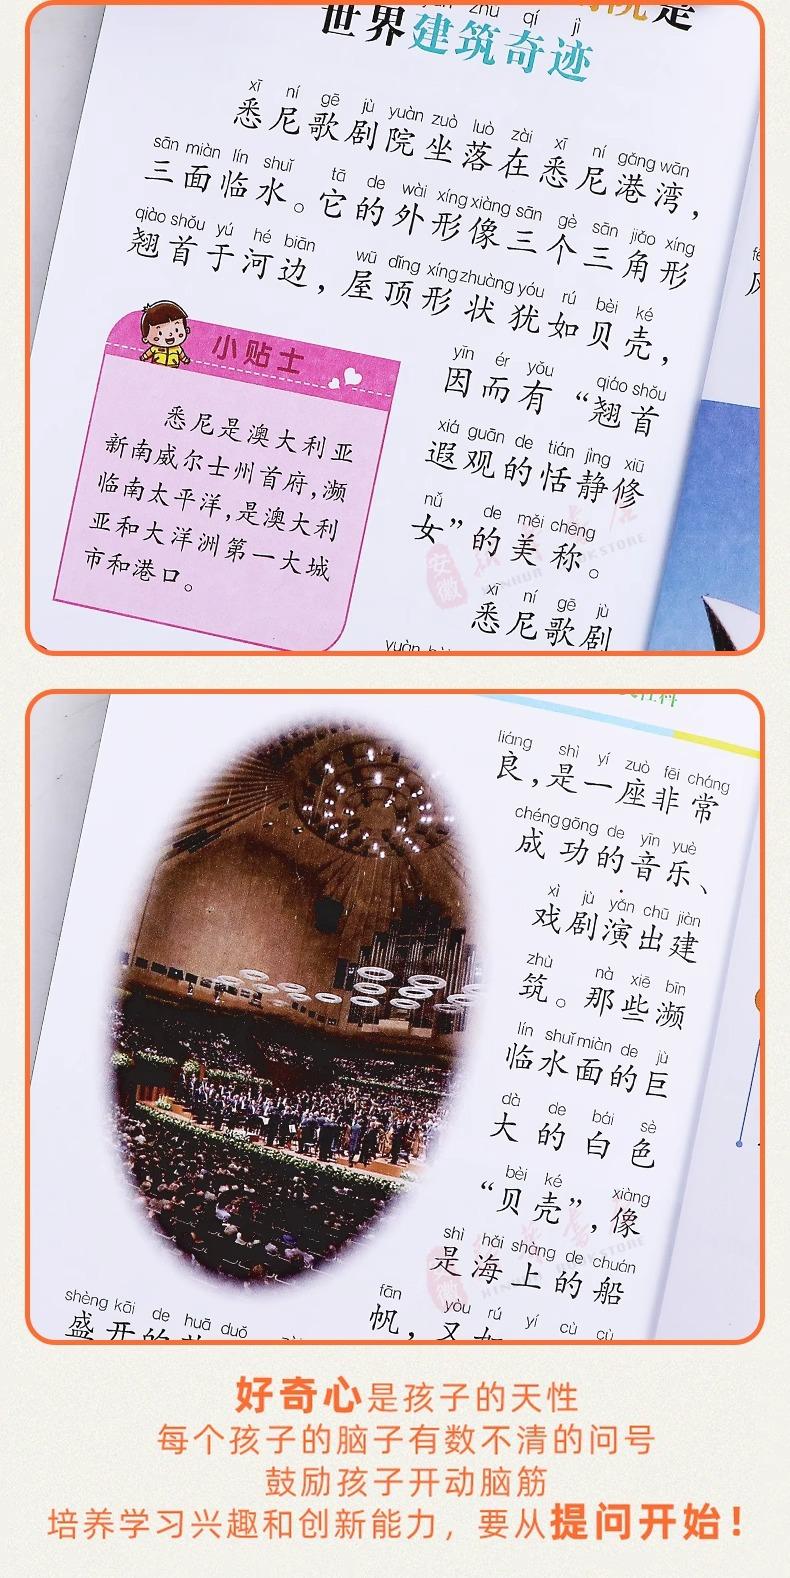 院是
zhù qí jì
世界建筑奇迹
xī ní gē jù yuàn zuò luò zài xī ní gǎng wān
悉尼歌剧院坐落在悉尼港湾，
sān miàn lín shuǐ tā de wài xíng xiàng sān gè sān jiǎo xíng
三面临水。它的外形像三个三角形
qiào shǒu yú hé biān wū dǐng xíng zhuàng yóu rú bèi ké
翘首于河边，屋顶形状犹如贝壳，
yīn ér yǒu qiáo shǒu
因而有“翘首
xiá guān de tián jìng xiū
遐观的恬静修
nǚ de měi chēng
女”的美称。
xī ní gē jù
悉尼歌剧
小贴士
悉尼是澳大利亚
新南威尔士州首府，濒
临南太平洋，是澳大利
亚和大洋洲第一大城
市和港口。
liáng shì yí zuò fēi cháng
良，是一座非常
chénggōng de yīn yuè
成功的音乐、
xì jù yǎn chū jiàn
戏剧演出建
zhù nà xiē bīn
筑。那些濒
lín shuǐ miàn de jù
临水面的巨
dà de bái sè
大的白色
bèi ké xiàng
“贝壳”，像
shì hǎi shàng de chuán
是海上的船
fān yòu rú yí cù cù
帆，又如
shèng kāi de huā duǒ
盛开的
好奇心是孩子的天性
每个孩子的脑子有数不清的问号
鼓励孩子开动脑筋
培养学习兴趣和创新能力，要从提问开始！